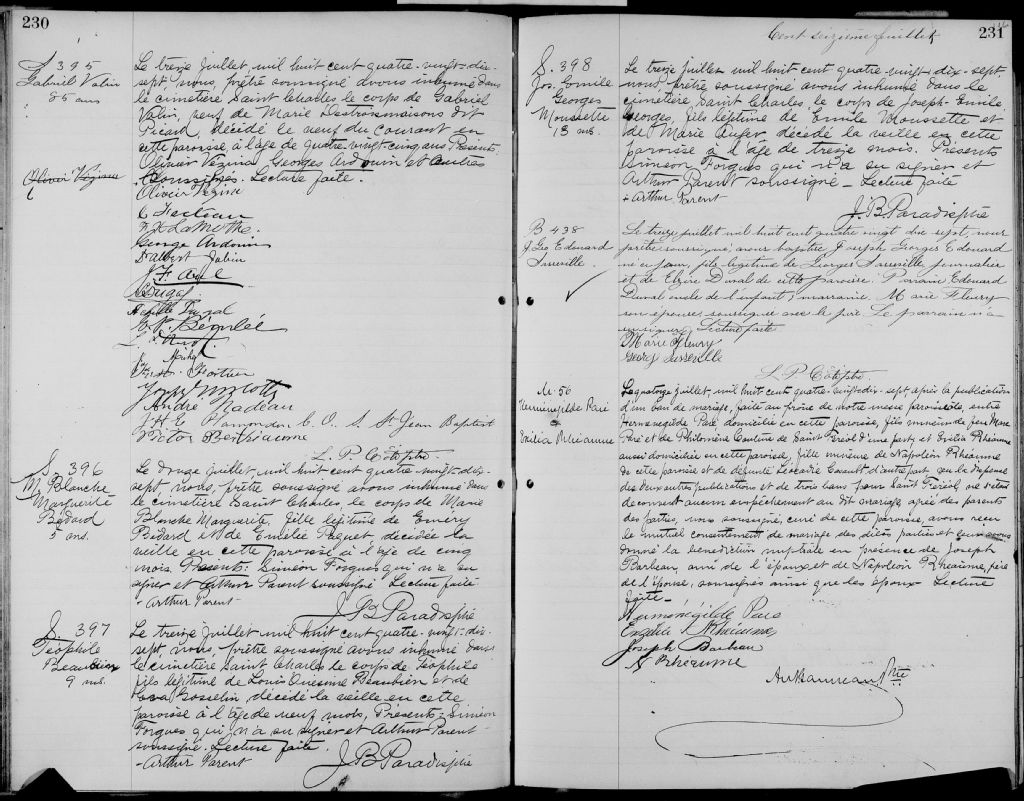 230
S 395
Gabriel Valin
85 ans
Le treize Juillet, mil huit cent quatre-vingt-dix-
sept, nous, prêtre soussigné avons inhumé dans
le cimetière Saint Charles le corps de Gabriel
Valin, veuf de Marie Destroismaisons dit
Picard, décédé le neuf du courant en
cette paroisse à l'age de quatre-vingt-cinq ans. Présents
Olivier Vézina Georges Ardouin et autres
soussignés. Lecture faite.
Olivier Vézina
George Ardouin
Dr Albert Jobin
André Nadeau
J A E Plamondon C. O. S. St Jean Baptist
Victor Berthiaume
S. 396
M Blanche
Marguerite
Bédard
5 ms.
Le douze Juillet, mil huit cent quatre-vingt-dix-
sept, nous, prêtre soussigné avons inhumé dans
le cimetière Saint Charles, le corps de Marie
Blanche Marguerite, fille légitime de Emery
Bédard et de Emélie Paquet, décédée la
veille en cette paroisse à l'age de cinq
mois. Présents: Siméon Forgues qui n'a su
signer et Arthur Parent soussigné Lecture faite
- Arthur Parent -
J. B. Paradis ptre
S. 397
Téophile
Beaubien
9 ms.
Le treize Juillet, mil huit cent quatre-vingt-dix-
sept, nous, prêtre soussigné avons inhumé dans
le cimetière Saint Charles le corps de Téophile
fils légitime de Louis Onésime Beaubien et de
Gosselin, décédé la veille en cette
paroisse à l'âge de neuf mois, Présents: Siméon
Forgues qui n'a su signer et Arthur Parent
soussigné. Lecture faite.
- Arthur Parent
J. B. Paradis ptre
Cent seizième feuillet
231
S. 398
Jos. Emile
Georges
Moussette
13 ms.
Le treize Juillet, mil huit cent quatre-vingt-dix-sept,
nous, prêtre soussigné avons inhumé dans le
cimetière Saint Charles, le corps de Joseph-Emile,
Georges, fils légitime de Emile Moussette et
de Marie Auger, décédé la veille en cette
paroisse à l'âge de treize mois. Présents
Siméon Forgues qui n'a su signer et
Arthur Parent soussigné - Lecture faite
Arthur Parent
J. B. Paradis ptre
B 438
J. Geo Edouard
Le treize juillet mil huit cent quatre vingt dix sept, nous
prêtre soussigné, avons baptisé Joseph Georges Edouard
né ce jour, fils légitime de Georges journalier
et de Elzire Duval de cette paroisse. Parrain, Edouard
Duval oncle de l'enfant; marraine, Marie Fleury
son épouse, soussignée avec le père. Le parrain n'a
su signer. Lecture faite
Marie Fleury
L. P. Côté ptre
M. 56
Herménégilde Paré
&
Exilia Rhéaume
Le quatorze Juillet, mil huit cent quatre-vingt-dix-sept, après la publication
d'un ban de mariage, faite au prône de notre messe paroissiale, entre
Herménégilde Paré domicilié en cette paroisse, fils mineur de feu Marc
Paré et de Philomène Couture de Saint Féréol d'une part; et Exilia Rhéaume
aussi domiciliée en cette paroisse, fille mineure de Napoléon Rhéaume
de cette paroisse et de défunte Léocadie d'autre part, vu la dispense
des deux autres publications et de trois bans pour Saint Féréol, ne s'étant
découvert aucun empêchement au dit mariage, agréé des parents
des parties, nous soussigné, curé de cette paroisse, avons reçu
le mutuel consentement de mariage des dites parties et leur avons
donné la bénédiction nuptiale en présence de Joseph
Barbeau, ami de l'époux et de Napoléon Rhéaume, père
de l'épouse, soussignés ainsi que les époux. Lecture
faite -
Herménégilde Paré
Rhéaume
Joseph Barbeau
N Rhéaume